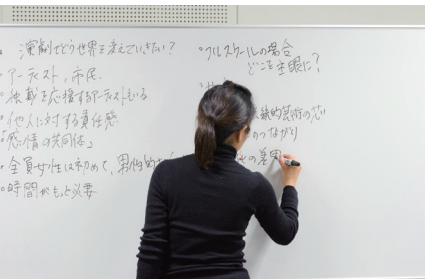 演劇でどう世界を変えていきたい?
・アーティスト、市民
・独裁を応援するアーティストもいる
・他人に対する責任感
「感情の共同体」
・全員女性は初めて、男性的
・時間がもっと必要
・フルスケールの場合
どこを主眼に?
的芸術の
つながり
の差異